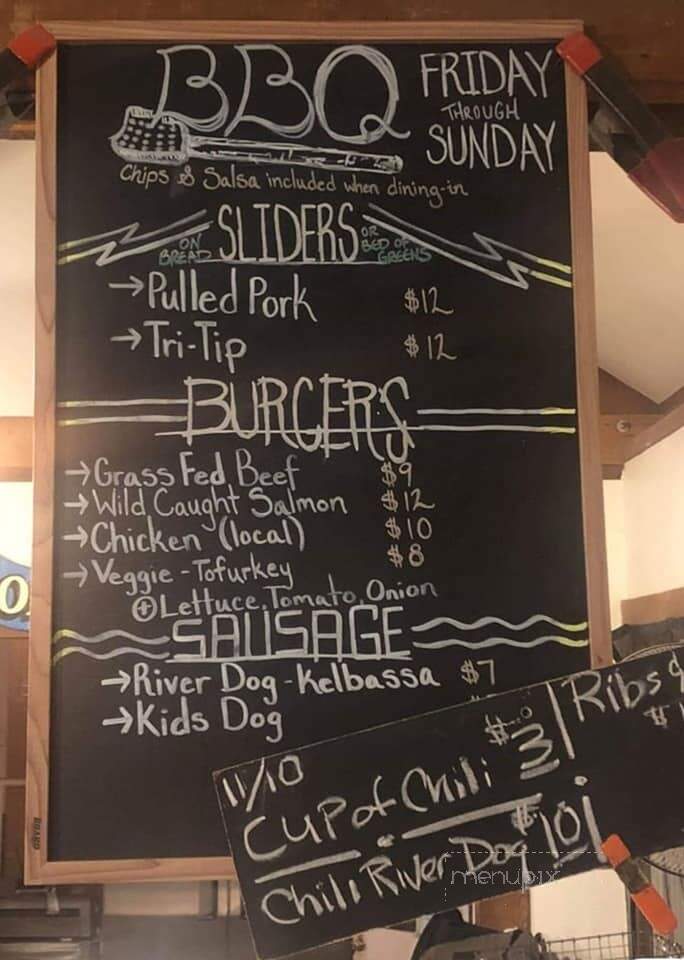 BBQ FRIDAY
THROUGH
SUNDAY
Chips & Salsa included when dining-in
SLIDERS
ON BREAD OR BED OF GREENS
→Pulled Pork $12
→Tri-Tip $12
BURGERS
→Grass Fed Beef $9
→Wild Caught Salmon $12
→Chicken (local) $10
→Veggie-Tofurkey $8
⊕Lettuce, Tomato, Onion
SAUSAGE
→River Dog-Kelbassa $7
→Kids Dog
11/10
Cup of Chili $3
Ribs
Chili River Dog $10
menupix